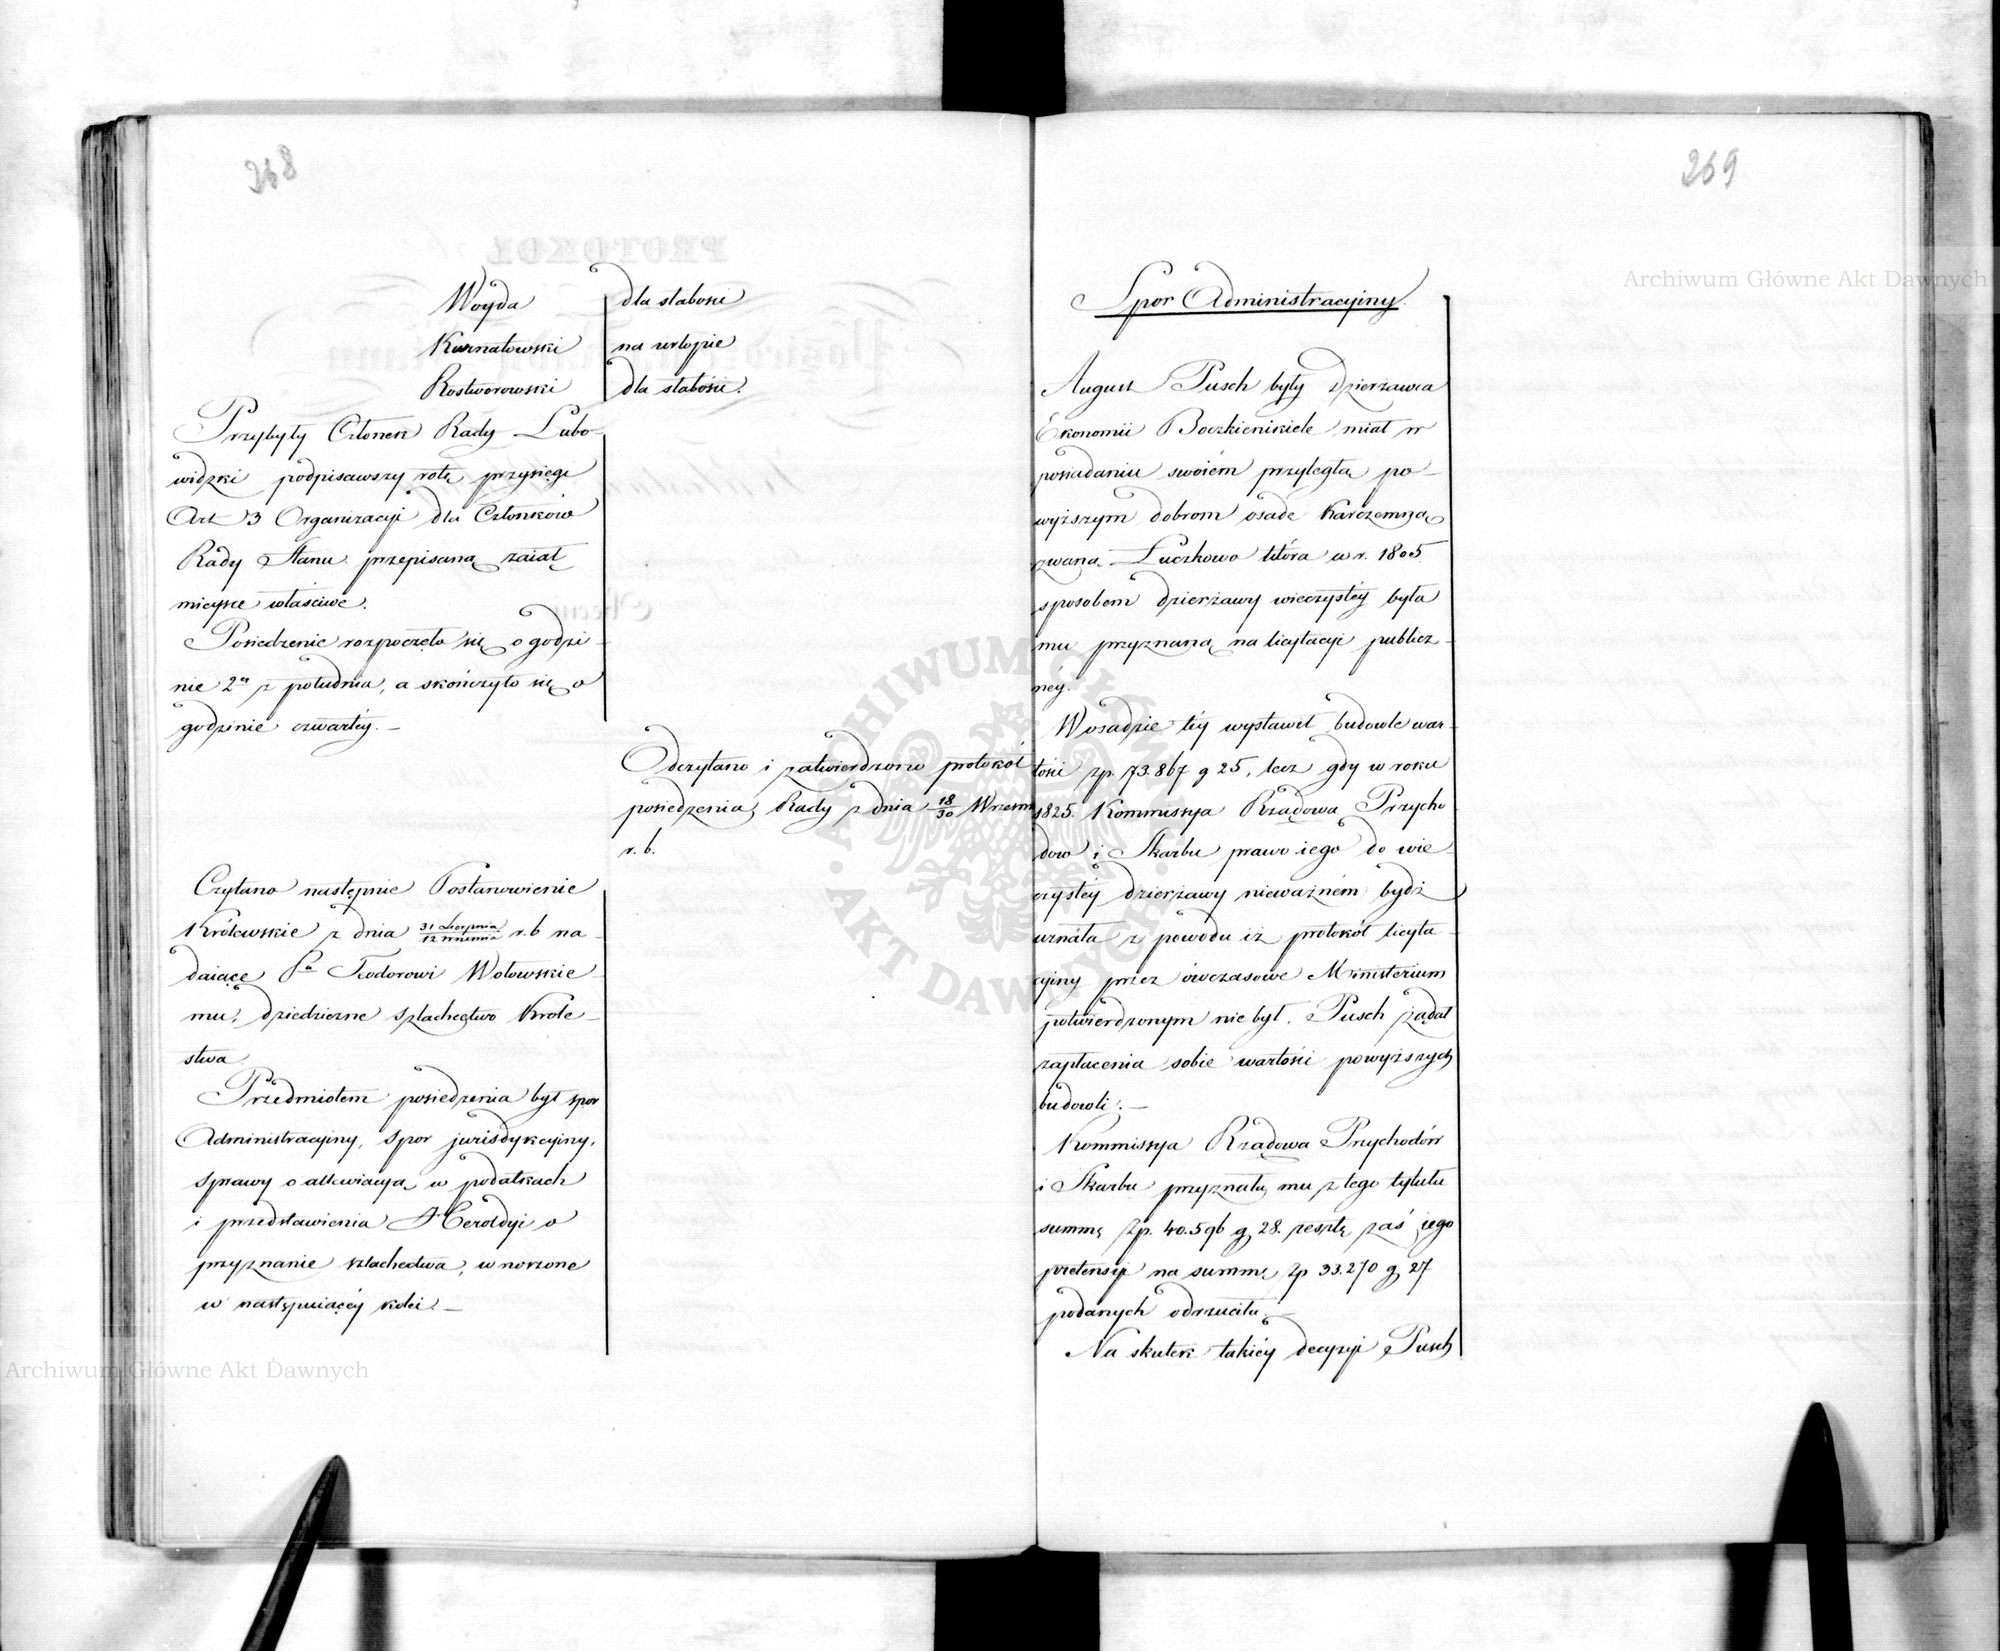 268
Woyda dla słabości
Kurnatowski na urlopie
Rostworowski dla słabości.
Przybyły Członek Rady Lubo-
widzki podpisawszy rotę przysięgi
Art 3 Organizacyi dla Członków
Rady Stanu przepisaną zaiął
mieysce właściwe.
Posiedzenie rozpoczęło się o godzi-
nie 2ey z południa, a skończyło się o
godzinie czwartéy. —
Odczytano i zatwierdzono protokół
posiedzenia Rady z dnia 18/30 Wrześn
r. b.
Czytano następnie Postanowienie
Królewskie z dnia 31 Sierpnia/12 Września r. b na-
daiące Pu Teodorowi Wołowskie-
mu, dziedziczne szlachectwo Króle-
stwa
Przedmiotem posiedzenia był spor
Administracyiny, spor jurisdykcyiny,
sprawy o allewiacyą w podatkach
i przedstawienia Heroldyi o
przyznanie szlachectwa, wnoszone
w następuiącéy kolei. —
269
Spor Administracyiny.
August Pusch były dzierzawca
Ekonomii Boczkienikiele miał w
posiadaniu swoiém przyległą po-
wyższym dobrom osadę Karczemną
zwaną Łuczkowo która w r. 1805
sposobem dzierżawy wieczystéy była
mu przyznaną na licytacyi publicz-
néy.
W osadzie téy wystawił budowle war-
tości zp. 73.867 g 25, lecz gdy w roku
1825. Kommissya Rządowa Przycho-
dow i Skarbu prawo iego do wie-
czystéy dzierżawy nieważném bydź
uznała z powodu iż protokół licyta-
cyiny przez ówczasowe Ministerium
potwierdzonym nie był, Pusch żądał
zapłacenia sobie wartości powyższych
budowli. —
Kommissya Rządowa Przychodów
i Skarbu przyznała mu z tego tytułu
summę zp. 40.596 g 28. resztę zaś iego
pretensyi na summę zp 33.270 g 27
podanych odrzuciła. —
Na skutek takiéy decyzyi Pusch
Archiwum Główne Akt Dawnych
Archiwum Główne Akt Dawnych
ARCHIWUM GŁÓWNE
AKT DAWNYCH